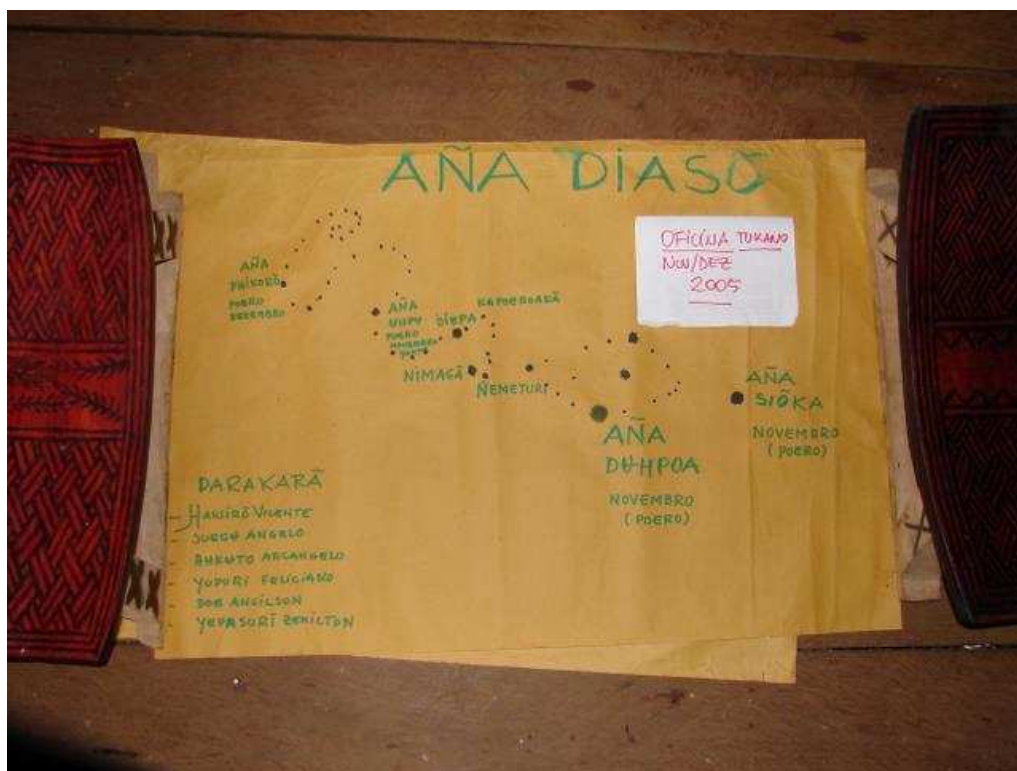 AÑA DIASO
OFICINA TUKANO
NOV/DEZ
2005
AÑA
PHIKORÕ
POERO
DEZEMBRO
AÑA
UHPU
POERO
NOVEMBRO
DIEPA
KAPOEROARÃ
NIMAGÃ
ÑEMETURI
AÑA
DUHPOA
NOVEMBRO
(POERO)
AÑA
SIÕKA
NOVEMBRO
(POERO)
DARAKARÃ
VICENTE
ANGELO
ARCANGELO
YUPURI FELICIANO
YEPASURI ZENILTON